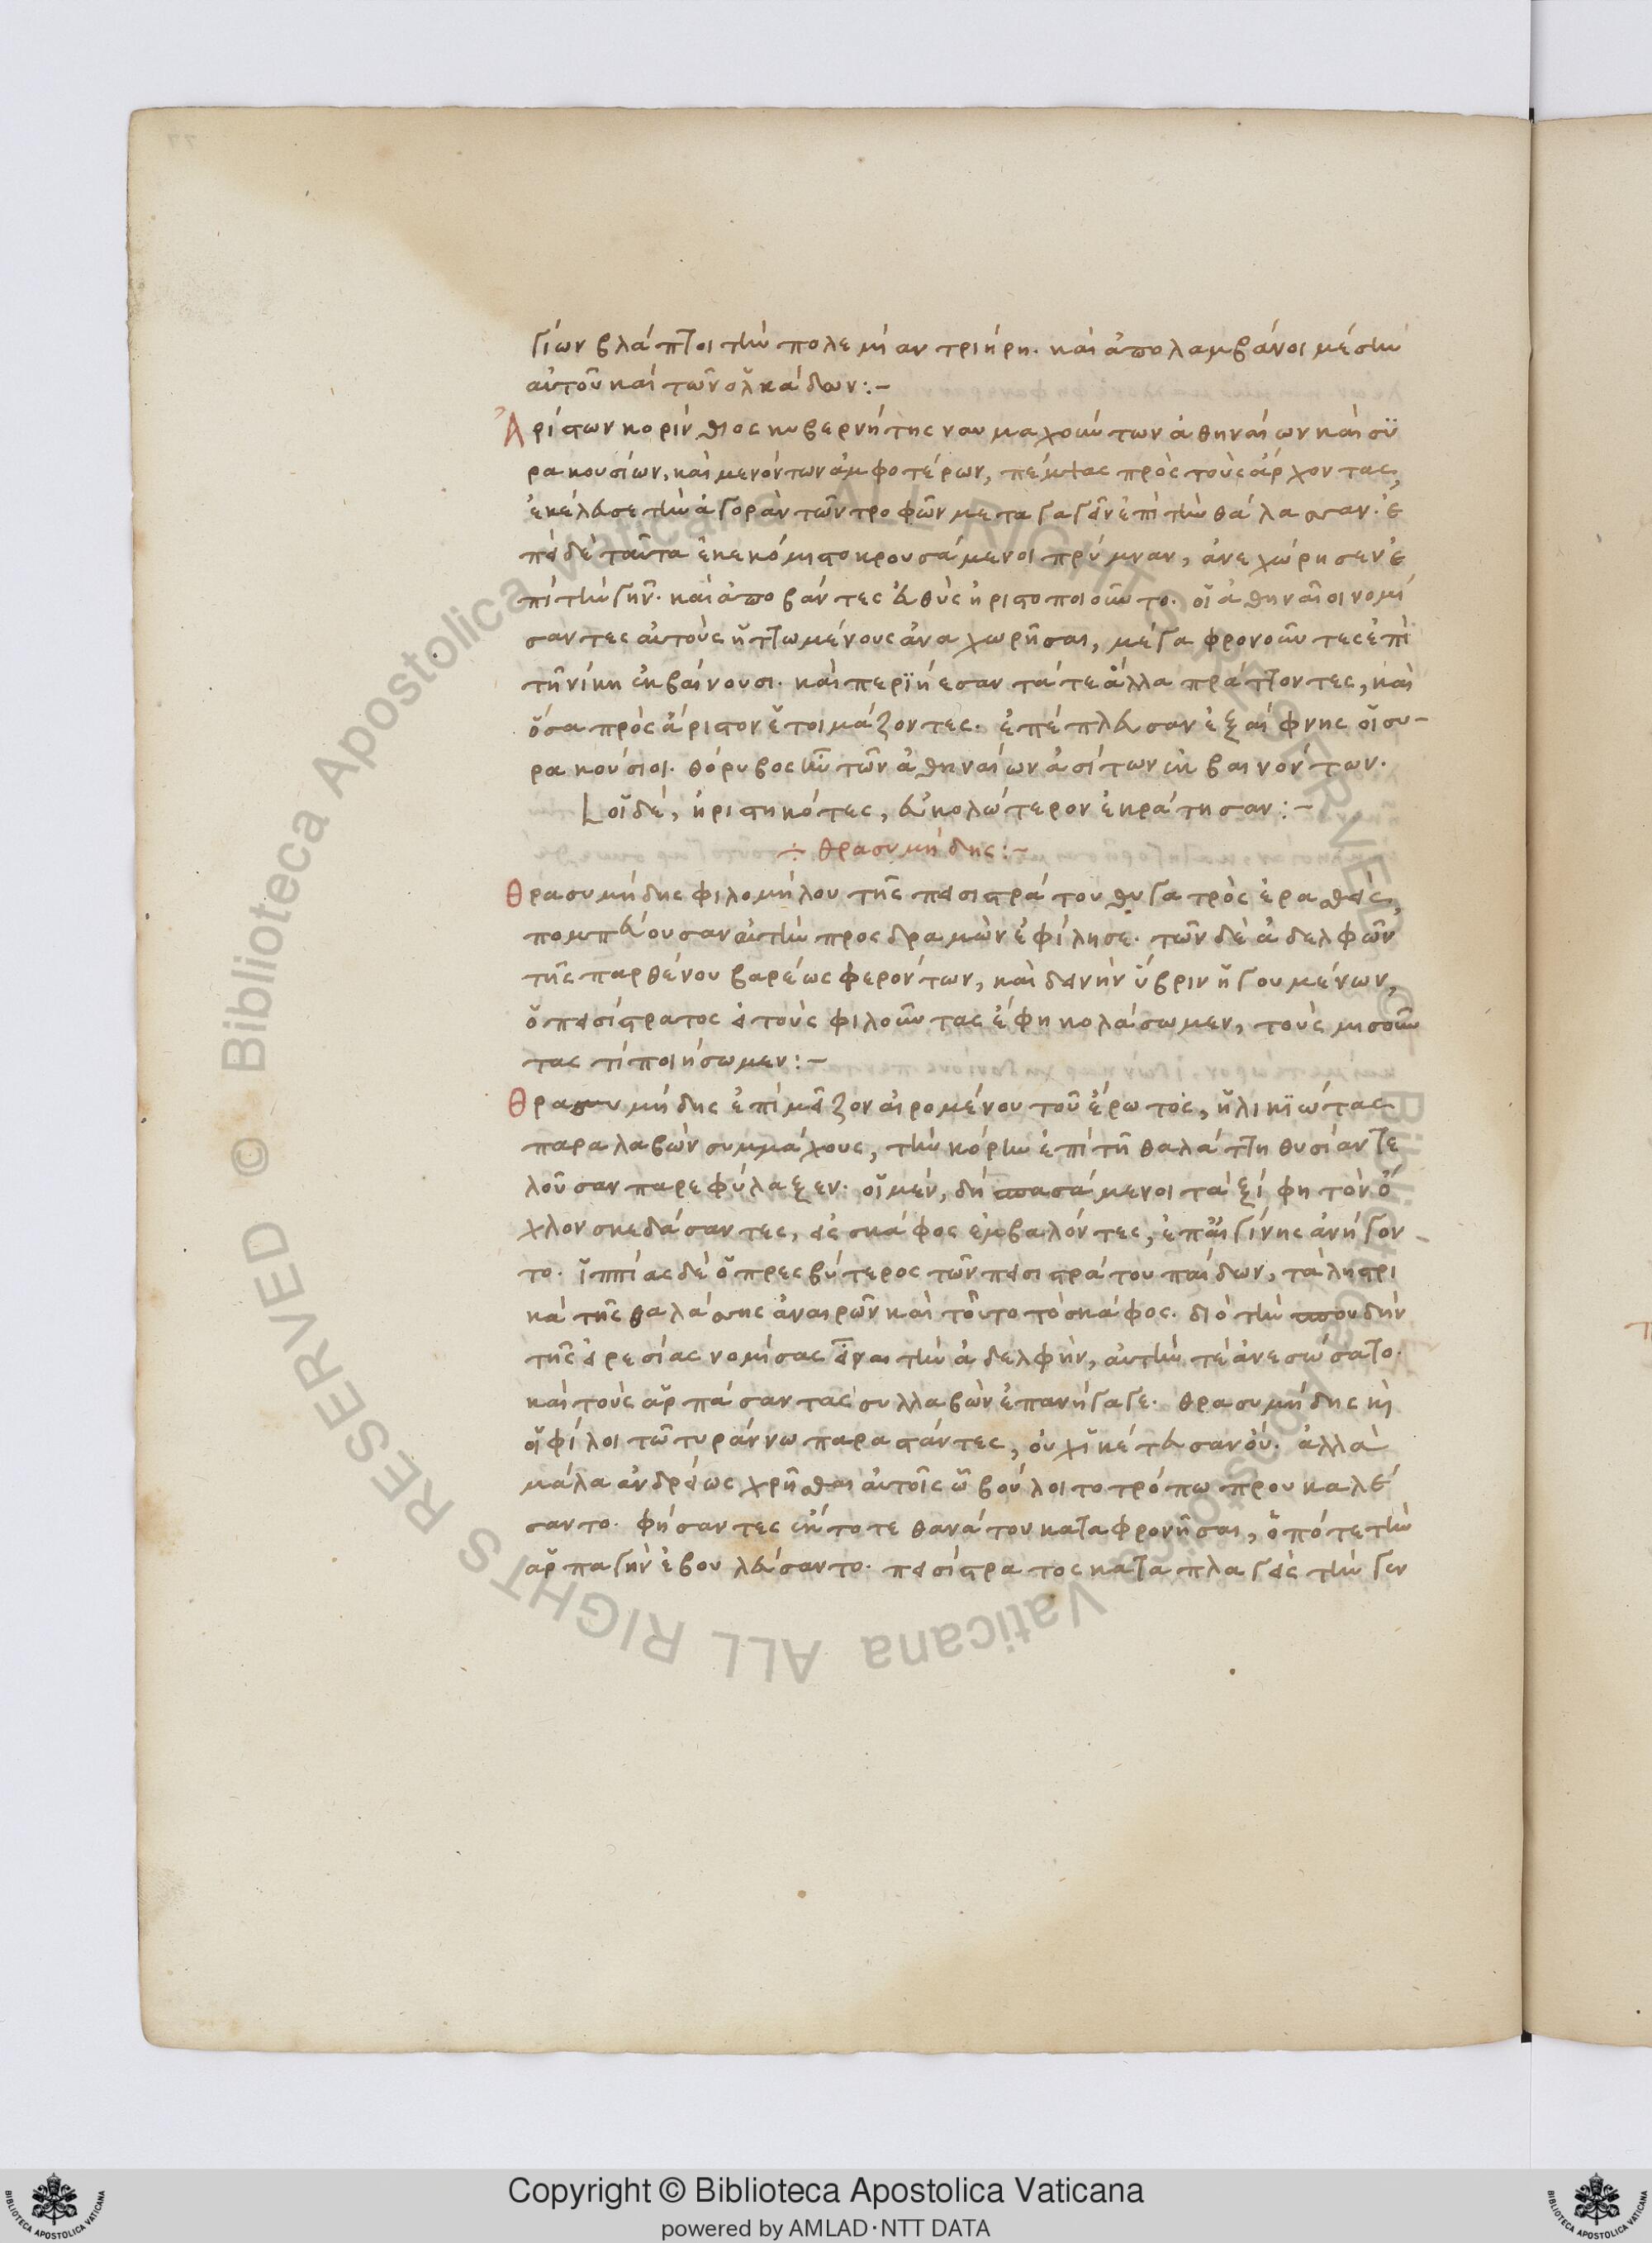 γίων βλάπτοι τὴν πολεμίαν τριήρη. καὶ ἀπολαμβάνοι μέσην
αὐτοῦ καὶ τῶν ὁλκάδων:-
Ἀρίστων κορίνθιος κυβερνήτης ναυμαχούντων ἀθηναίων καὶ συ
ρακουσίων, καὶ μενόντων ἀμφοτέρων, πέμψας πρὸς τοὺς ἄρχοντας,
ἐκέλευσε τὴν ἀγορὰν τῶν τροφῶν μεταγαγεῖν ἐπὶ τὴν θάλασσαν. ἐ
πεὶ δὲ ταῦτα ἐκεκόμιστο κρουσάμενοι πρύμναν, ἀνεχώρησεν ἐ
πὶ τὴν γῆν. καὶ ἀποβάντες εὐθὺς ἠριστοποιοῦντο. οἱ ἀθηναῖοι νομί
σαντες αὐτοὺς ἡττωμένους ἀναχωρῆσαι, μέγα φρονοῦντες ἐπὶ
τῇ νίκῃ ἐκβαίνουσι. καὶ περιῄεσαν τά τε ἄλλα πράττοντες, καὶ
ὅσα πρὸς ἄριστον ἑτοιμάζοντες. ἐπέπλευσαν ἐξαίφνης οἱ συ-
ρακούσιοι. θόρυβος ἦν τῶν ἀθηναίων ἀσίτων ἐμβαινόντων.
οἱ δὲ, ἠριστηκότες, εὐκολώτερον ἐκράτησαν:-
÷ θρασυμήδης:-
Θρασυμήδης φιλομήλου τῆς πεισιστράτου θυγατρὸς ἐρασθεὶς,
πομπεύουσαν αὐτὴν προσδραμὼν ἐφίλησε. τῶν δὲ ἀδελφῶν
τῆς παρθένου βαρέως φερόντων, καὶ δεινὴν ὕβριν ἡγουμένων,
ὁ πεισίστρατος εἰ τοὺς φιλοῦντας ἔφη κολάσωμεν, τοὺς μισοῦν
τας τί ποιήσωμεν:-
Θρασυμήδης ἐπὶ μεῖζον αἰρομένου τοῦ ἔρωτος, ἡλικιώτας
παραλαβὼν συμμάχους, τὴν κόρην ἐπὶ τῇ θαλάττῃ θυσίαν τε
λοῦσαν παρεφύλαξεν. οἱ μὲν, δὴ σπασάμενοι τὰ ξίφη τὸν ὄ
χλον σκεδάσαντες, εἰς σκάφος ἐμβαλόντες, ἐπ' αἰγίνης ἀνήγον-
το. ἱππίας δὲ ὁ πρεσβύτερος τῶν πεισιστράτου παίδων, τὰ λῃστρι
κὰ τῆς θαλάσσης ἀναιρῶν καὶ τοῦτο τὸ σκάφος. διὸ τὴν σπουδὴν
τῆς εἰρεσίας νομίσας εἶναι τὴν ἀδελφὴν, αὐτὴν τὲ ἀνεσώσατο.
καὶ τοὺς ἁρπάσαντας συλλαβὼν ἐπανήγαγε. θρασυμήδης κὶ
οἱ φίλοι τῷ τυράννῳ παραστάντες, οὐχ ἱκέτευσαν οὐ. ἀλλὰ
μάλα ἀνδρείως χρῆσθαι αὐτοῖς ᾧ βούλοιτο τρόπῳ προυκαλέ
σαντο. φήσαντες ἔκτοτε θανάτου καταφρονῆσαι, ὁπότε τὴν
ἁρπαγὴν ἐβουλεύσαντο. πεισίστρατος καταπλαγεὶς τὴν γεν
Copyright © Biblioteca Apostolica Vaticana
powered by AMLAD·NTT DATA